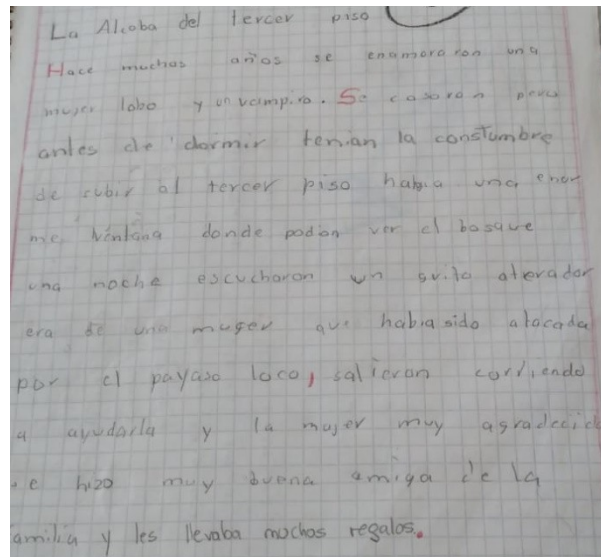 La Alcoba del tercer piso
Hace muchos años se enamoraron una
mujer lobo y un vampiro. Se casaron pero
antes de dormir tenian la constumbre
de subir al tercer piso habia una enor
me ventana donde podian ver el bosque
una noche escucharon un grito aterador
era de una muger que habia sido atacada
por el payaso loco, salieron corriendo
a ayudarla y la mujer muy agradecid
se hizo muy buena amiga de la
amilia y les llevaba muchos regalos.